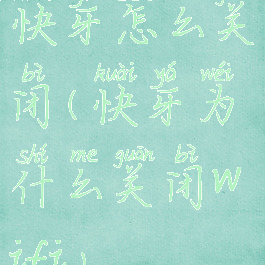 快牙怎么关
bì kuài yá wéi
闭(快牙为
shí me guān bì
什么关闭w
ifi)